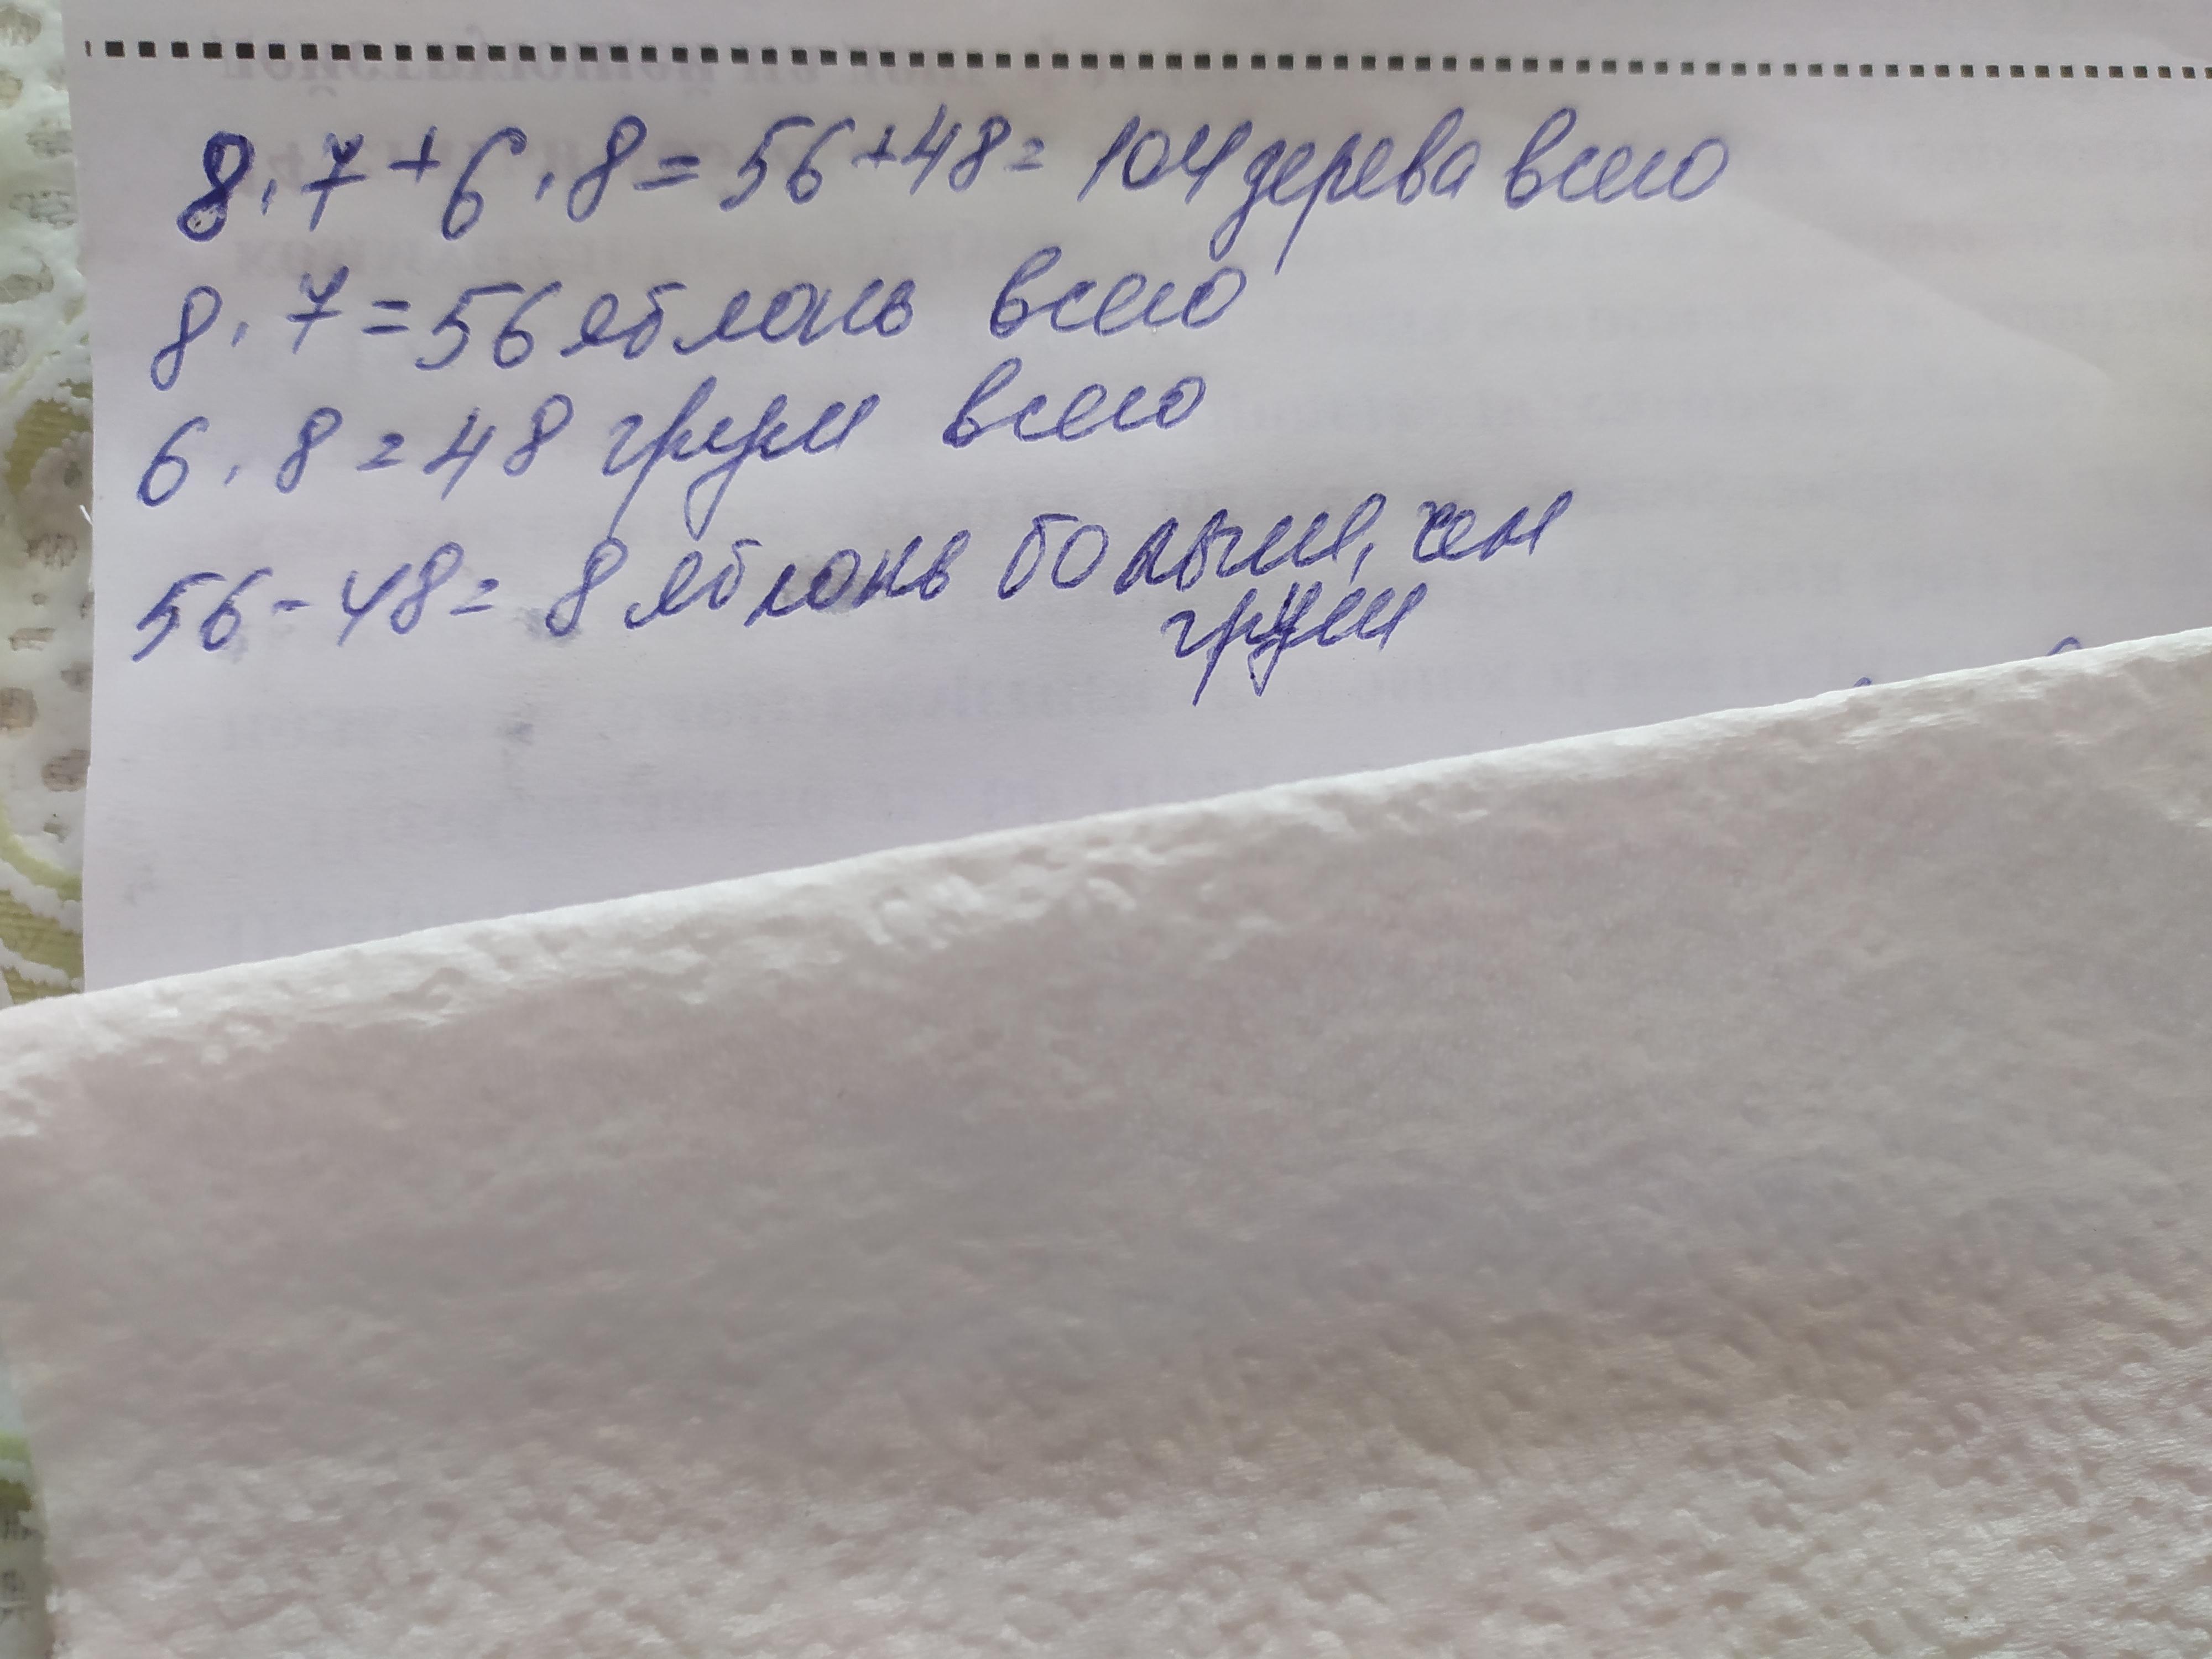 8 · 7 + 6 · 8 = 56 + 48 = 104 дерева всего
8 · 7 = 56 яблонь всего
6 · 8 = 48 груш всего
56 - 48 = 8 яблонь больше, чем
груш